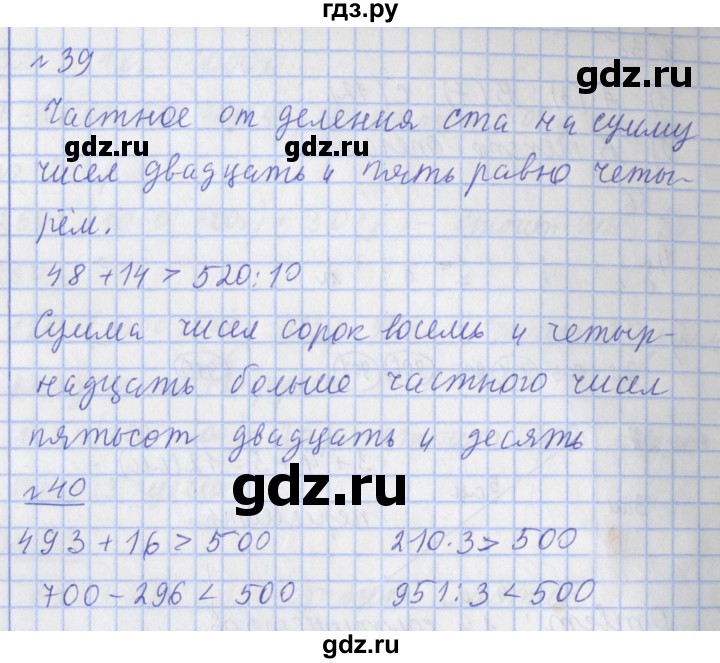 гдз.ру
№ 39
Частное от деления ста на сумму
gdz.ru gdz.ru
чисел двадцать и пять равно четы-
рём.
48 + 14 > 520 : 10
Сумма чисел сорок восемь и четыр-
надцать больше частного чисел
пятьсот двадцать и десять
№ 40
gdz.ru
493 + 16 > 500 210 · 3 > 500
700 - 296 < 500 951 : 3 < 500
gdz.ru